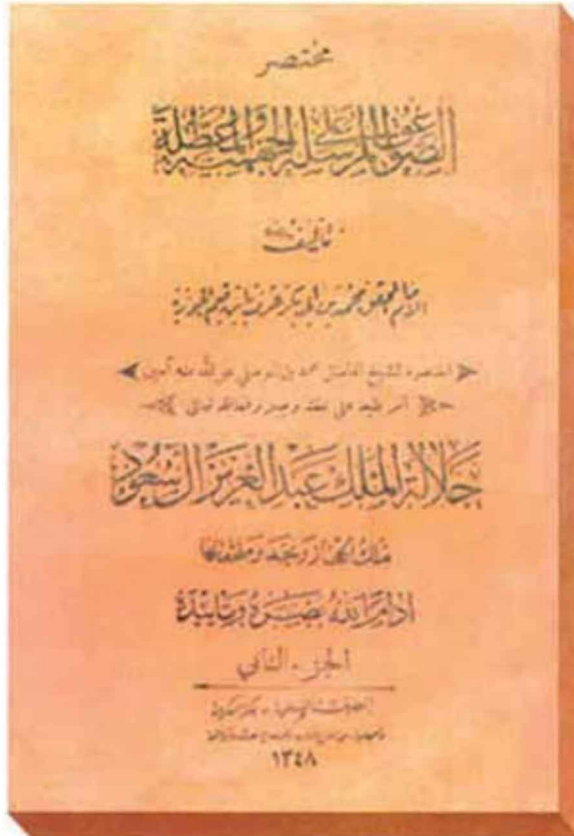 مختصر
الصواعق المرسلة على الجهمية والمعطلة
تأليف
الإمام المحقق محمد بن أبي بكر عرف بابن قيم الجوزية
اختصره الشيخ الفاضل محمد بن الموصلي عفر الله منه آمين
أمر بطبعه على نفقته وفقه الله تعالى
جلالة الملك عبد العزيز آل سعود
ملك الحجاز ونجد وملحقاتها
أدام الله نصره وتأييده
الجزء الثاني
المطبعة السلفية - مكة المكرمة
١٣٤٨